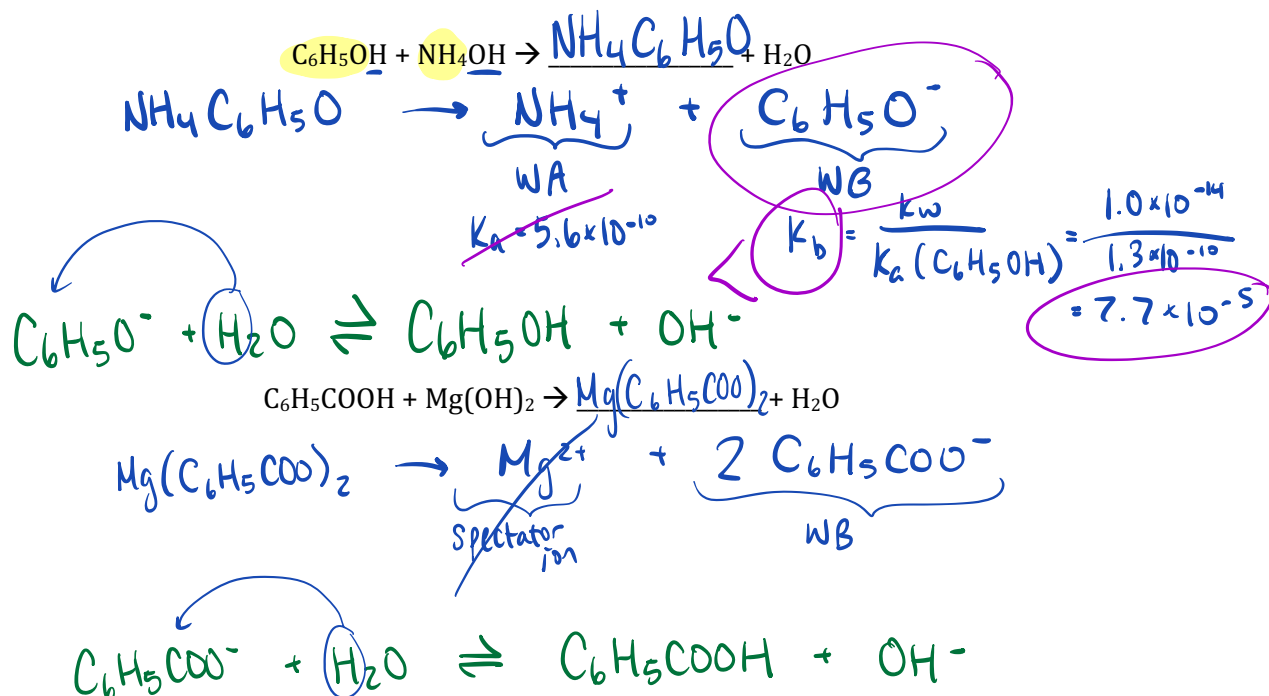 C₆H₅OH + NH₄OH → NH₄C₆H₅O + H₂O
NH₄C₆H₅O → NH₄⁺ + C₆H₅O⁻
WA WB
Ka = 5.6×10⁻¹⁰ < Kb = Kw / Ka (C₆H₅OH) = 1.0×10⁻¹⁴ / 1.3×10⁻¹⁰
= 7.7×10⁻⁵
C₆H₅O⁻ + H₂O ⇌ C₆H₅OH + OH⁻
C₆H₅COOH + Mg(OH)₂ → Mg(C₆H₅COO)₂ + H₂O
Mg(C₆H₅COO)₂ → Mg²⁺ + 2 C₆H₅COO⁻
Spectator ion WB
C₆H₅COO⁻ + H₂O ⇌ C₆H₅COOH + OH⁻